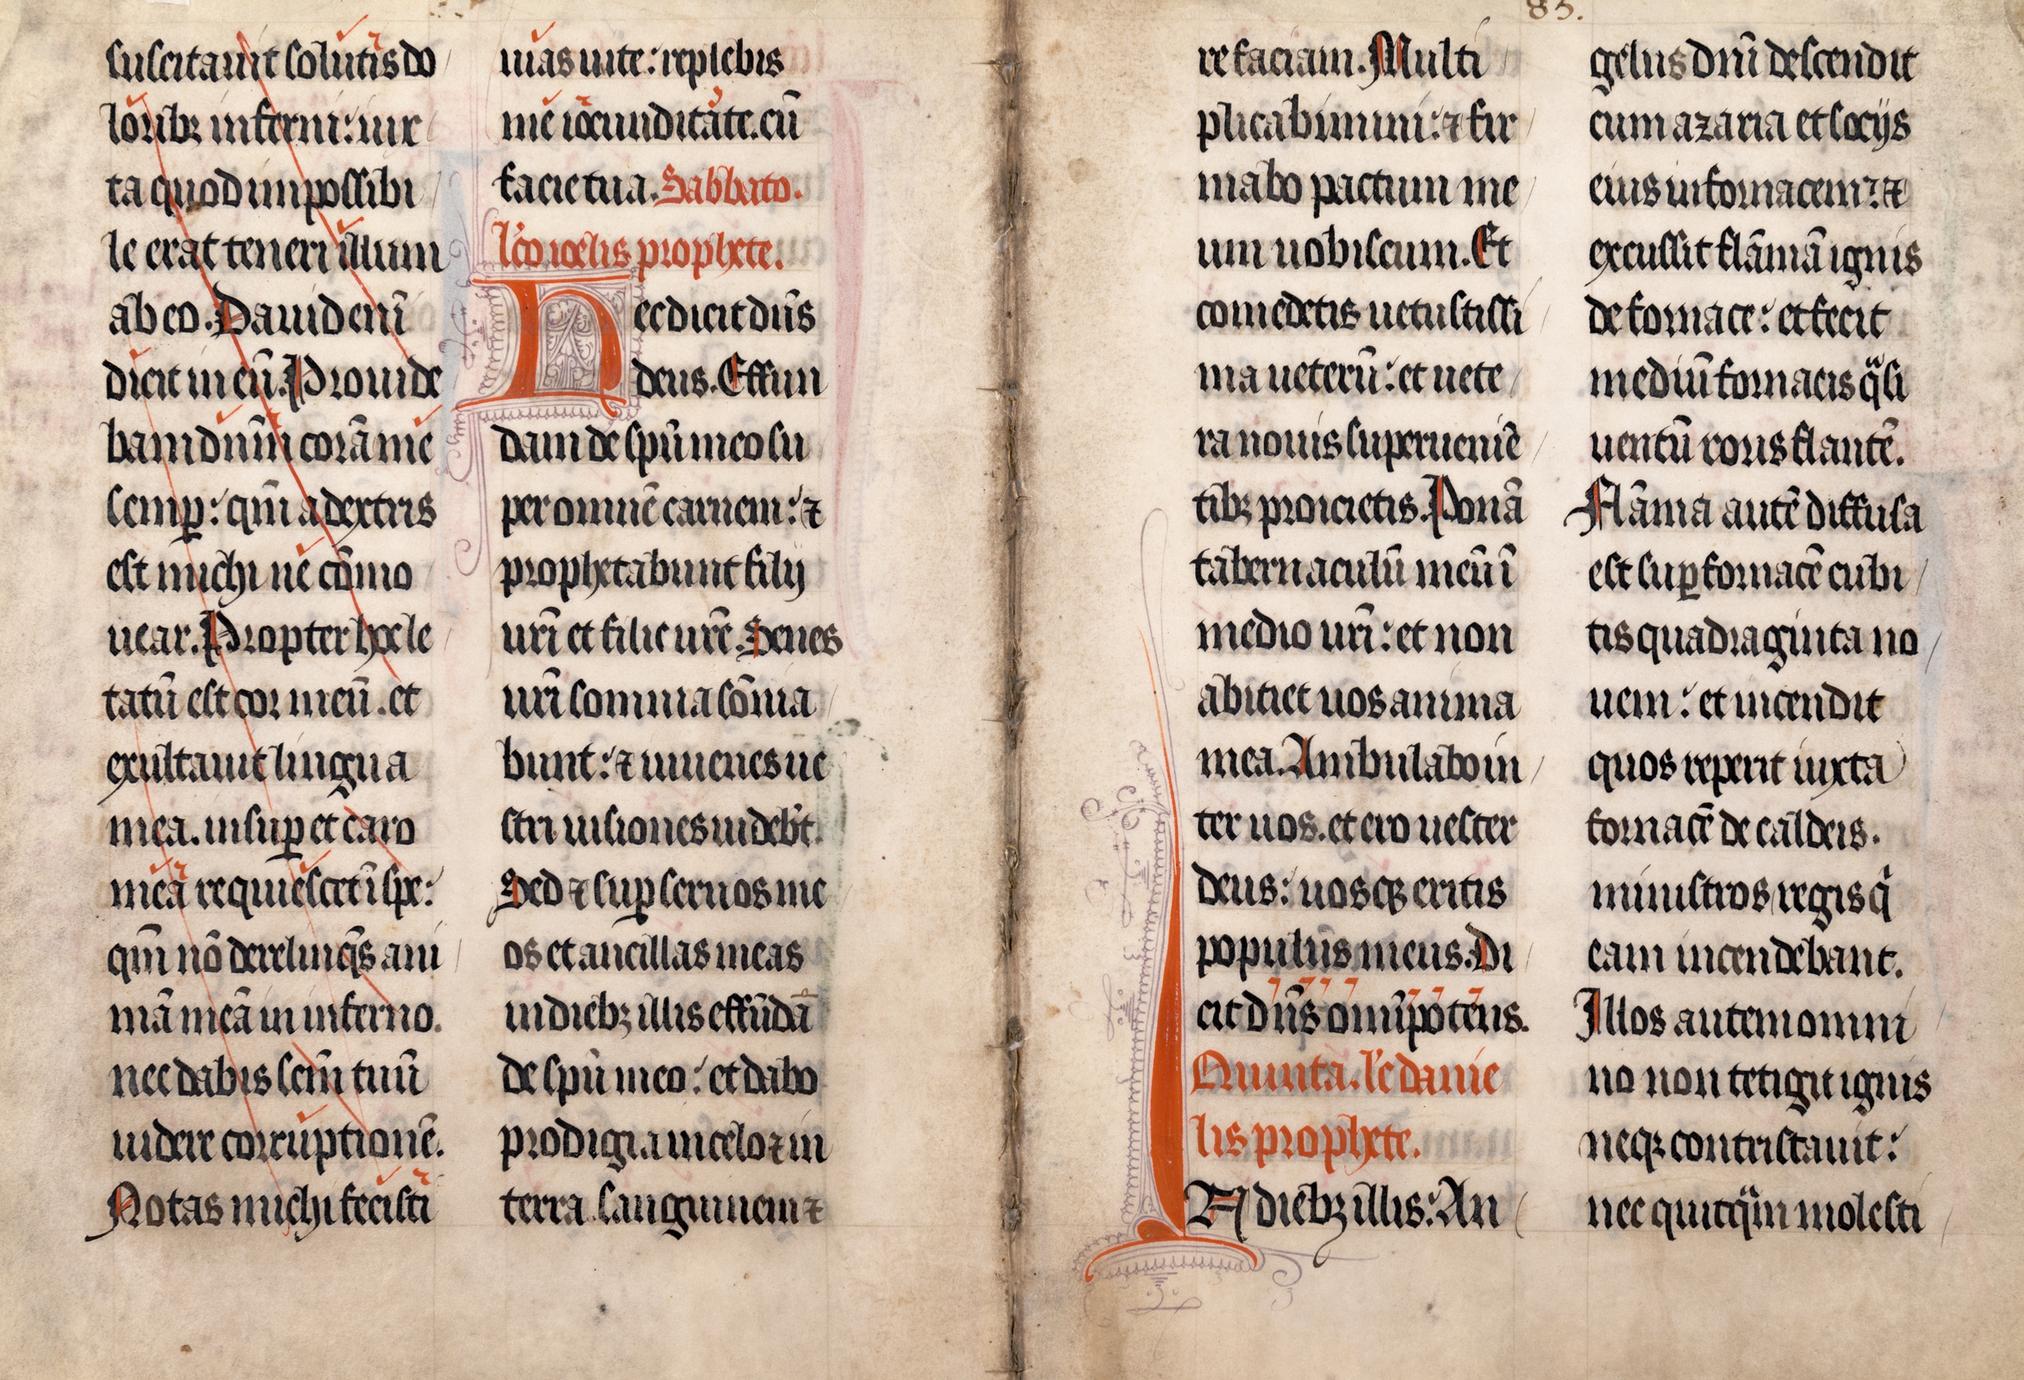 suscitauit solutis do
loribꝫ inferni: iux
ta quod impossibi
le erat teneri illum
ab eo. Dauid eni̅
dicit in eu̅. Prouide
bam dn̅m̅ cora̅ me
semꝑ: qm̅ a dextris
est michi ne co̅mo
uear. Propter hoc le
tatu̅ est cor meu̅. et
exultauit lingua
mea. insuꝑ et caro
mea requiescet i̅ spe:
qm̅ no̅ derelinq̅s ani
ma̅ mea̅ in inferno.
nec dabis scm̅ tuu̅
uidere corruptione̅.
Notas michi fecisti
uias uite: replebis
me iocunditate. cu̅
facie tua. Sabbato.
lc̅o ioelis prophete.
Hec dicit dn̅s
deus. Effun
dam de spu̅ meo su
per omne̅ carnem: ⁊
prophetabunt filij
uri̅ et filie ure̅. Senes
uri̅ somnia so̅nia
bunt: ⁊ iuuenes ue
stri uisiones uideb̅t.
Sed ⁊ suꝑ seruos me
os et ancillas meas
in diebꝫ illis effu̅da̅
de spu̅ meo: et dabo
prodigia in celo ⁊ in
terra. sanguinem ⁊
83.
re faciam. Multi
plicabimini: ⁊ fir
mabo pactum me
um uobiscum. Et
comedetis uetustissi
ma ueteru̅: et uete
ra nouis superuenie̅
tibꝫ proicietis. Pona̅
tabernaculu̅ meu̅ i̅
medio uri̅: et non
abiciet uos anima
mea. Ambulabo in
ter uos. et ero uester
deus: uosqꝫ eritis
populus meus. Di
cit dn̅s om̅ipote̅ns.
Quinta. lc̅ danie
lis prophete.
IN diebꝫ illis: An
gelus dn̅i descendit
cum azaria et socijs
eius in fornacem: ⁊
excussit fla̅ma̅ ignis
de fornace: et fecit
mediu̅ fornacis q̅si
uentu̅ roris flante̅.
Fla̅ma aute̅ diffusa
est suꝑ fornace̅ cubi
tis quadraginta no
uem: et incendit
quos reperit iuxta
fornace̅ de caldeis.
ministros regis q̅
eam incendebant.
Illos autem omni
no non tetigit ignis
neqꝫ contristauit:
nec quicq̅m molesti